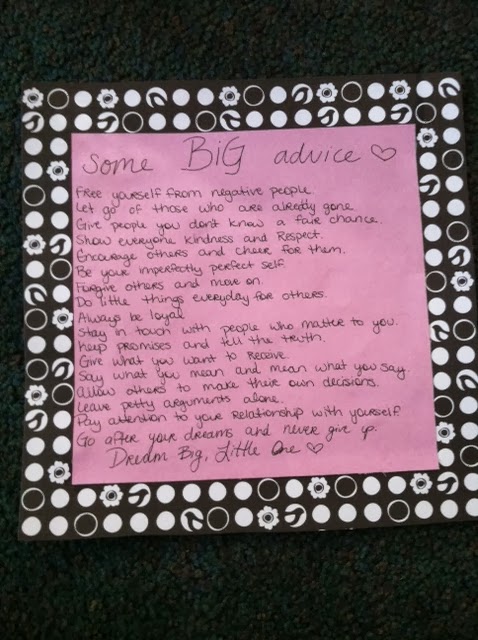 some BIG advice ♡
Free yourself from negative people.
Let go of those who are already gone.
Give people you don't know a fair chance.
Show everyone kindness and Respect.
Encourage others and cheer for them.
Be your imperfectly perfect self.
Forgive others and move on.
Do little things everyday for others.
Always be loyal.
Stay in touch with people who matter to you.
Keep promises and tell the truth.
Give what you want to Receive.
Say what you mean and mean what you say.
Allow others to make their own decisions.
Leave petty arguments alone.
Pay attention to your Relationship with yourself.
Go after your dreams and never give up.
Dream Big, Little One ♡